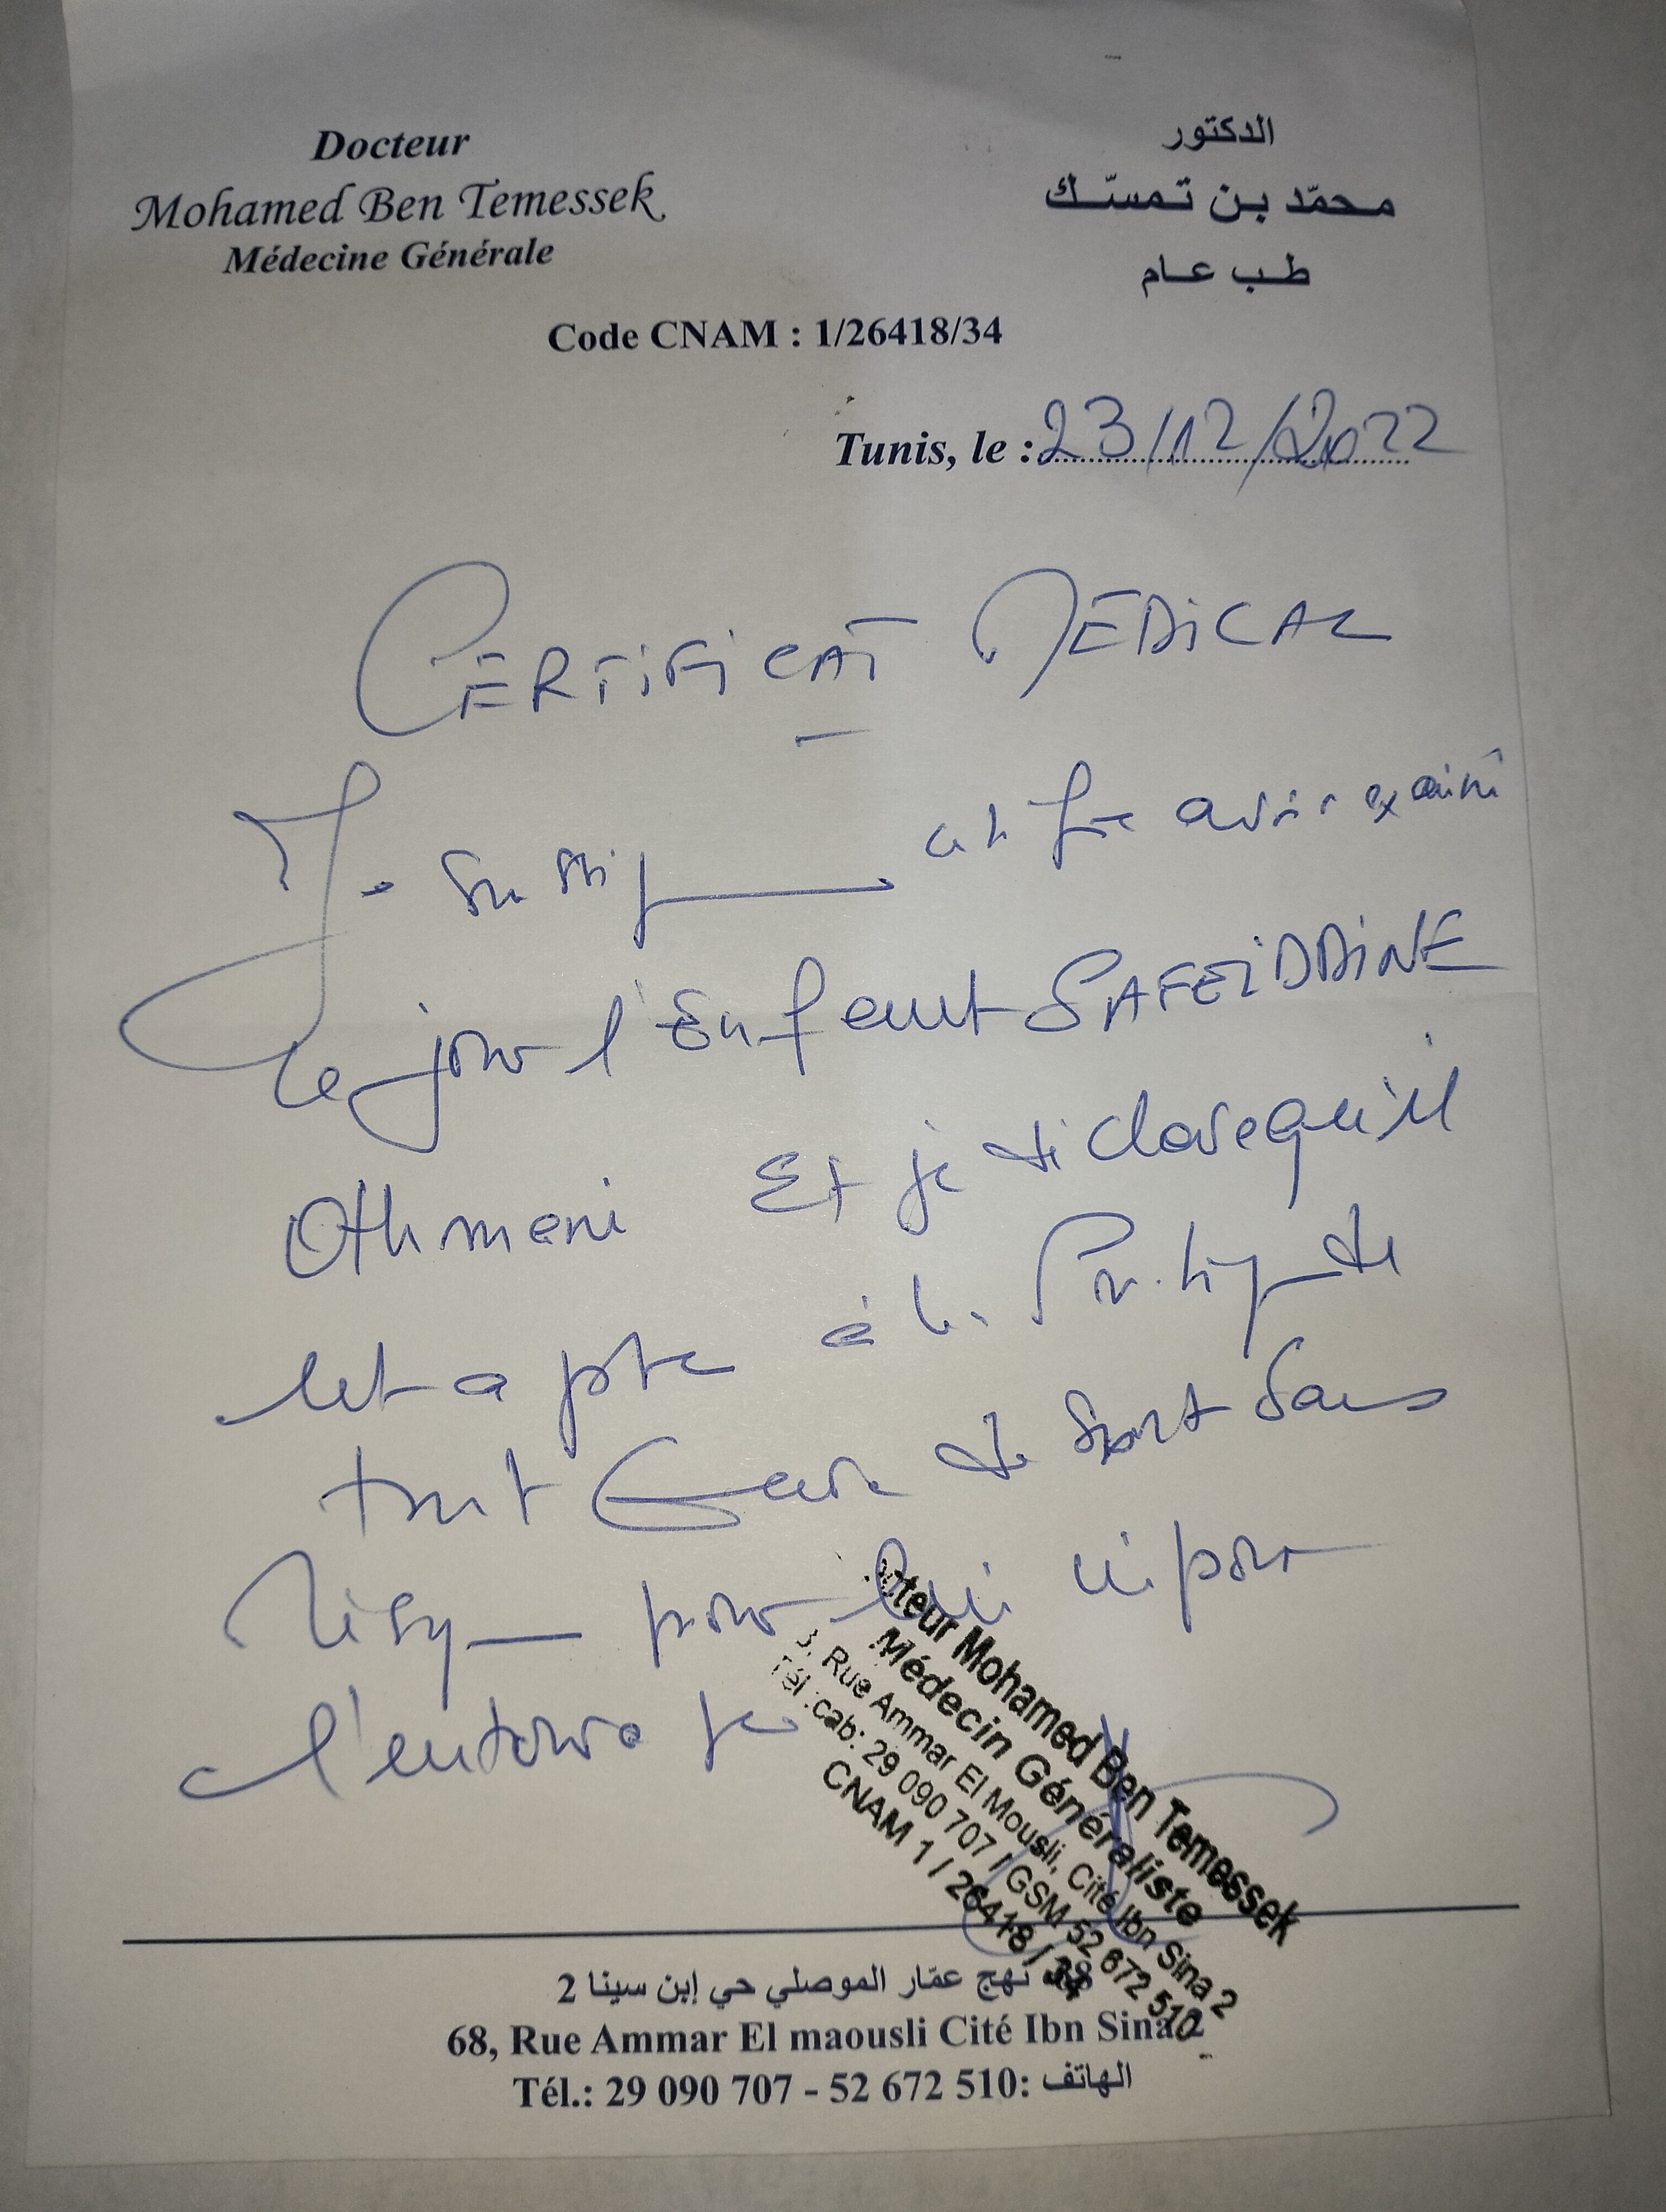 Docteur
Mohamed Ben Temessek
Médecine Générale
الدكتور
محمّد بن تمسّك
طب عام
Code CNAM : 1/26418/34
Tunis, le : 23/12/2022
CERTIFICAT MEDICAL
Je soussigné certifie avoir examiné
ce jour l'Enfant SAFEIDDINE
Othmeni Et je déclare qu'il
est apte à la Pratique de
tout Genre de Sport Sans
risque pour lui ni pour
l'entourage
Docteur Mohamed Ben Temessek
Médecin Généraliste
Rue Ammar El Mousli, Cité Ibn Sina 2
Tél.cab: 29 090 707 / GSM 52 672 510
CNAM 1 / 26418 / 34
نهج عمّار الموصلي حي إبن سينا 2
68, Rue Ammar El maousli Cité Ibn Sina 2
Tél.: 29 090 707 - 52 672 510 :الهاتف